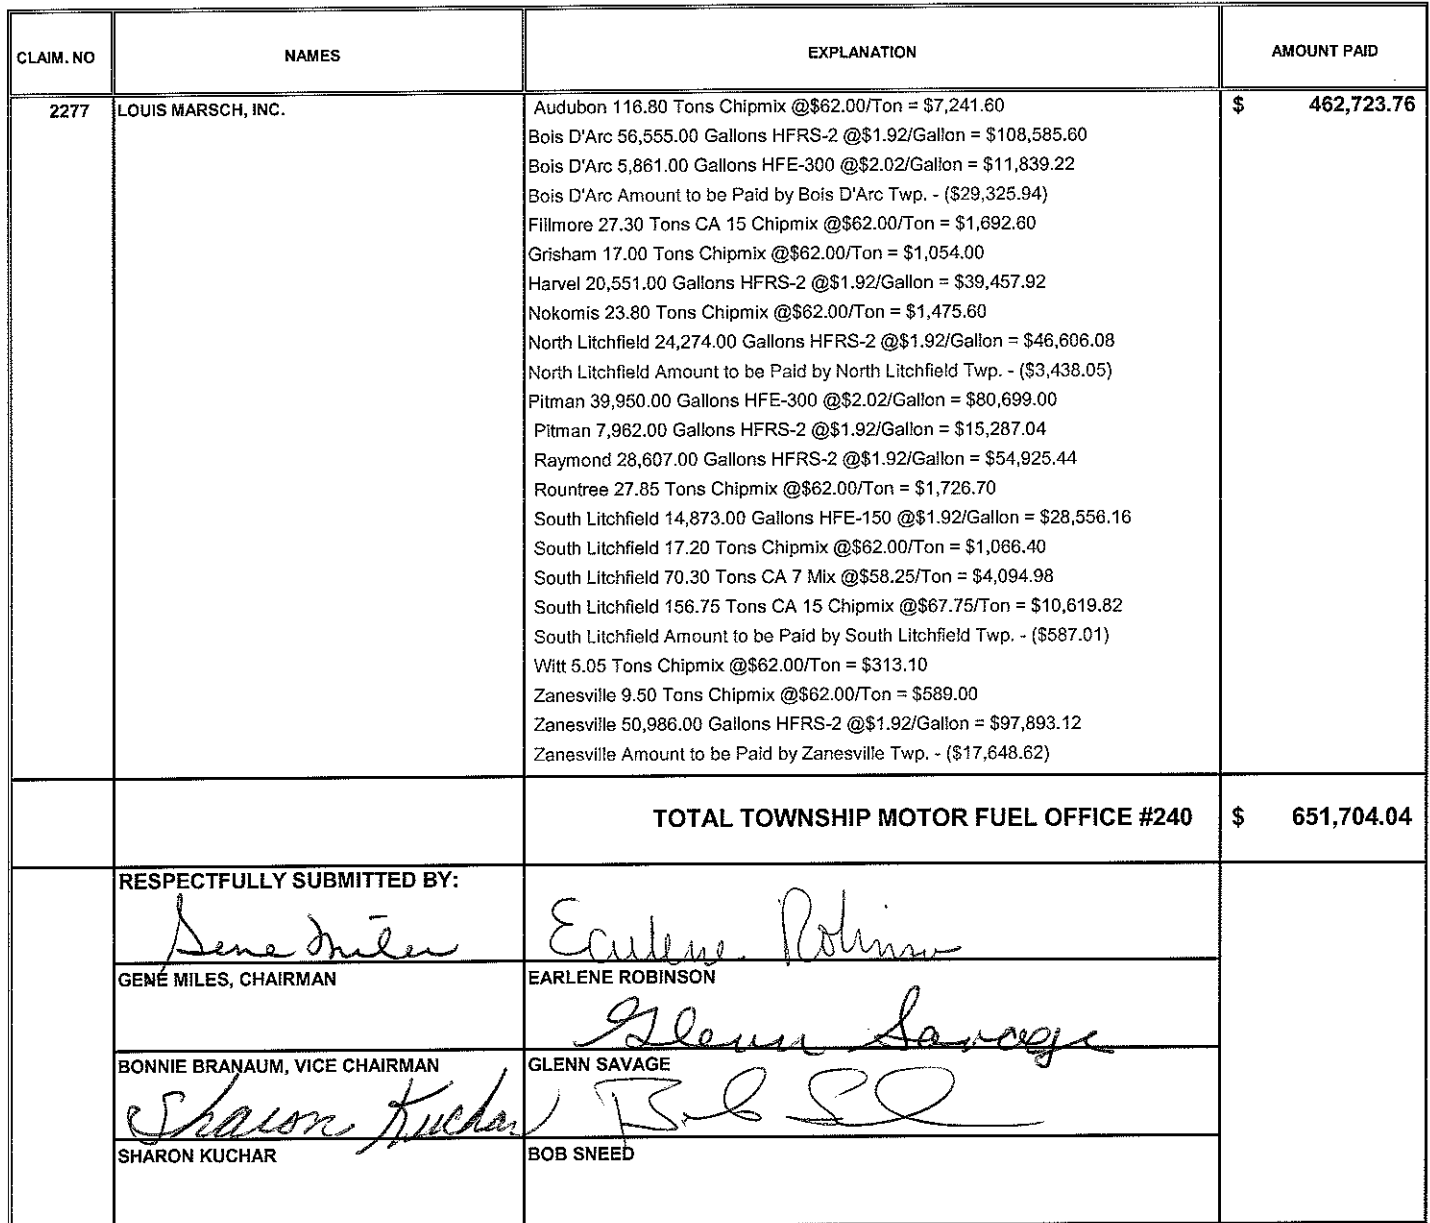 CLAIM. NO NAMES EXPLANATION AMOUNT PAID
2277 LOUIS MARSCH, INC. Audubon 116.80 Tons Chipmix @$62.00/Ton = $7,241.60 $ 462,723.76
Bois D'Arc 56,555.00 Gallons HFRS-2 @$1.92/Gallon = $108,585.60
Bois D'Arc 5,861.00 Gallons HFE-300 @$2.02/Gallon = $11,839.22
Bois D'Arc Amount to be Paid by Bois D'Arc Twp. - ($29,325.94)
Fillmore 27.30 Tons CA 15 Chipmix @$62.00/Ton = $1,692.60
Grisham 17.00 Tons Chipmix @$62.00/Ton = $1,054.00
Harvel 20,551.00 Gallons HFRS-2 @$1.92/Gallon = $39,457.92
Nokomis 23.80 Tons Chipmix @$62.00/Ton = $1,475.60
North Litchfield 24,274.00 Gallons HFRS-2 @$1.92/Gallon = $46,606.08
North Litchfield Amount to be Paid by North Litchfield Twp. - ($3,438.05)
Pitman 39,950.00 Gallons HFE-300 @$2.02/Gallon = $80,699.00
Pitman 7,962.00 Gallons HFRS-2 @$1.92/Gallon = $15,287.04
Raymond 28,607.00 Gallons HFRS-2 @$1.92/Gallon = $54,925.44
Rountree 27.85 Tons Chipmix @$62.00/Ton = $1,726.70
South Litchfield 14,873.00 Gallons HFE-150 @$1.92/Gallon = $28,556.16
South Litchfield 17.20 Tons Chipmix @$62.00/Ton = $1,066.40
South Litchfield 70.30 Tons CA 7 Mix @$58.25/Ton = $4,094.98
South Litchfield 156.75 Tons CA 15 Chipmix @$67.75/Ton = $10,619.82
South Litchfield Amount to be Paid by South Litchfield Twp. - ($587.01)
Witt 5.05 Tons Chipmix @$62.00/Ton = $313.10
Zanesville 9.50 Tons Chipmix @$62.00/Ton = $589.00
Zanesville 50,986.00 Gallons HFRS-2 @$1.92/Gallon = $97,893.12
Zanesville Amount to be Paid by Zanesville Twp. - ($17,648.62)
TOTAL TOWNSHIP MOTOR FUEL OFFICE #240 $ 651,704.04
RESPECTFULLY SUBMITTED BY:
Gene Miles Earlene Robinson
GENE MILES, CHAIRMAN EARLENE ROBINSON
Glenn Savage
BONNIE BRANAUM, VICE CHAIRMAN GLENN SAVAGE
Sharon Kuchar Bob Sneed
SHARON KUCHAR BOB SNEED